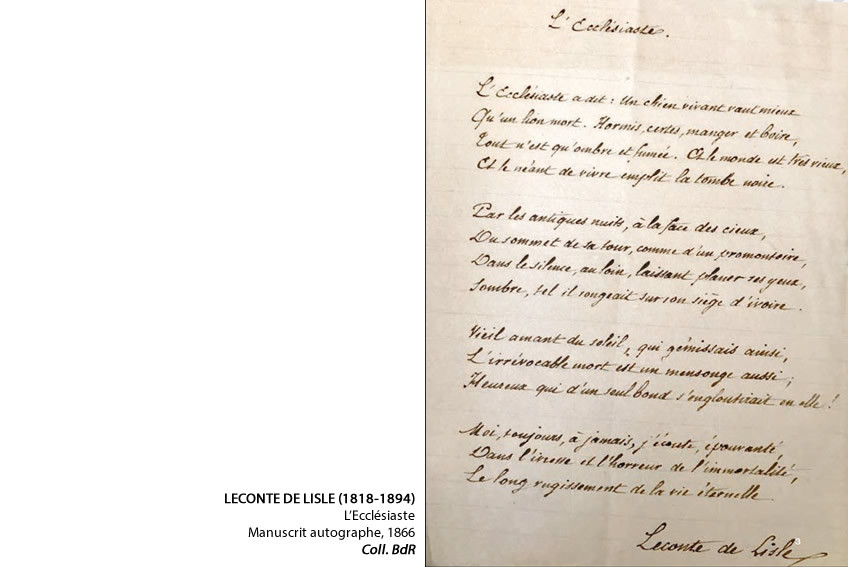 L'Ecclésiaste.
L'Ecclésiaste a dit : Un chien vivant vaut mieux
Qu'un lion mort. Hormis, certes, manger et boire,
Tout n'est qu'ombre et fumée. Et le monde est très vieux,
Et le néant de vivre emplit la tombe noire.
Par les antiques nuits, à la face des cieux,
Du sommet de sa tour, comme d'un promontoire,
Dans le silence, au loin, laissant planer ses yeux,
Sombre, tel il songeait sur son siège d'ivoire.
Vieil amant du soleil, qui gémissais ainsi,
L'irrévocable mort est un mensonge aussi ;
Heureux qui d'un seul bond s'engloutirait en elle !
Moi, toujours, à jamais, j'écoute, épouvanté,
Dans l'ivresse et l'horreur de l'immortalité,
Le long rugissement de la vie éternelle
Leconte de Lisle
3
LECONTE DE LISLE (1818-1894)
L'Ecclésiaste
Manuscrit autographe, 1866
Coll. BdR